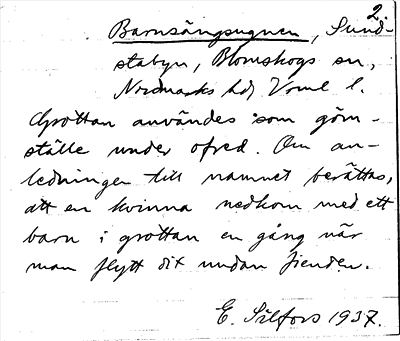 2.
Barnsängsugnen, Sund-
stabyn, Blomskogs sn,
Nordmarks hd, Värml l.
Grottan användes som göm-
ställe under ofred. Om an-
ledningen till namnet berättas,
att en kvinna nedkom med ett
barn i grottan en gång när
man flytt dit undan fienden.
E. Silfors 1937.